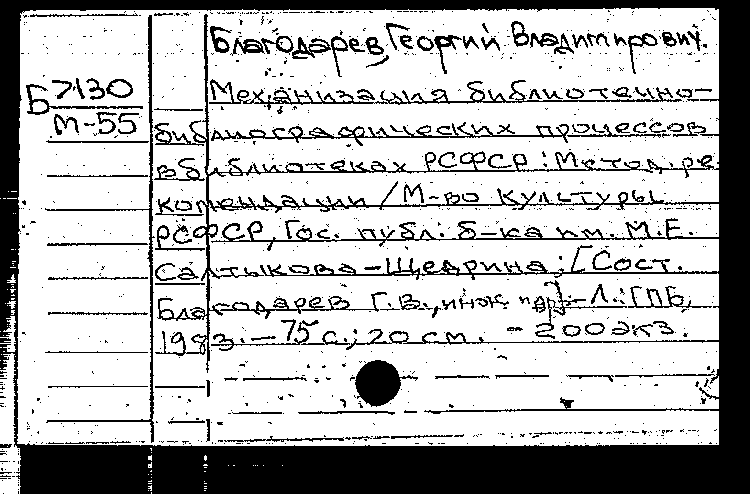 Благодарев, Георгий Владимирович.
Б 7130
М-55
Механизация библиотечно-
библиографических процессов
в библиотеках РСФСР: Метод. ре
комендации / М-во культуры
РСФСР, Гос. публ. б-ка им. М.Е.
Салтыкова-Щедрина; [Сост.
Благодарев Г.В., инж. и др.]-Л.: ГПБ,
1983.-75 с.; 20 см. - 200 экз.